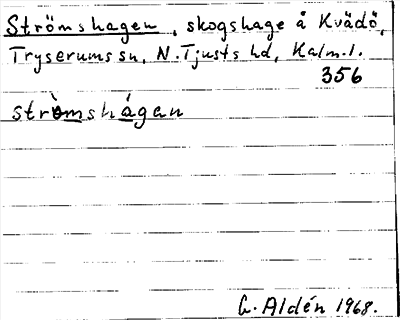 Strömshagen, skogshage å Kvädö,
Tryserums sn, N. Tjusts hd, Kalm. l.
356
strö̀mshágan
G. Aldén 1968.